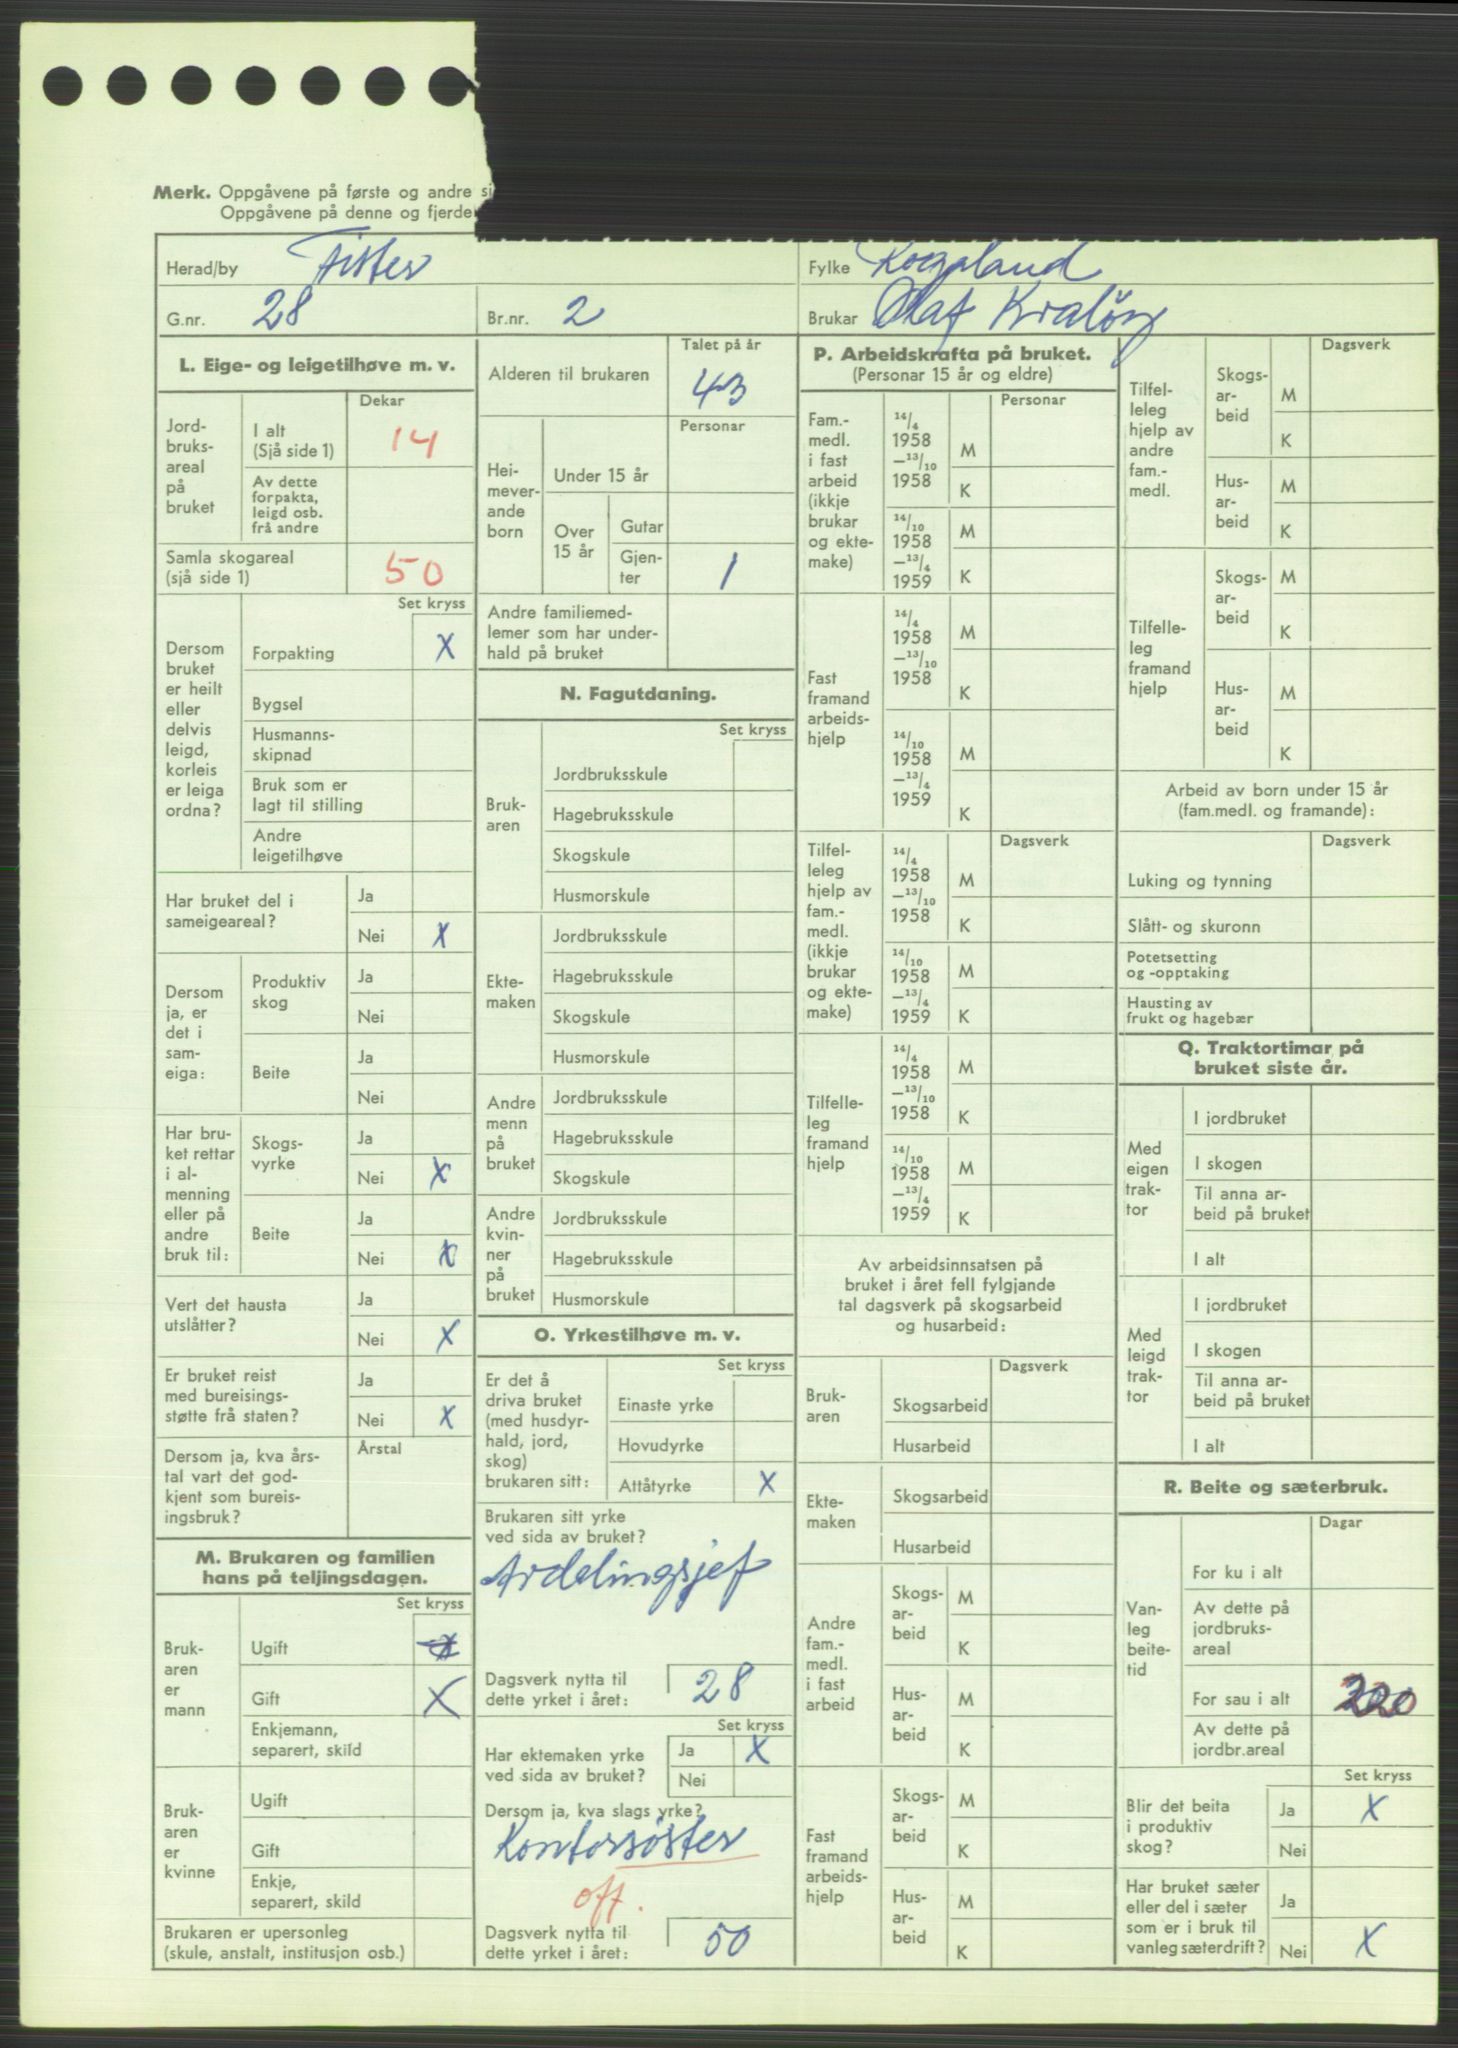 Merk. Oppgåvene på første og andre si
Oppgåvene på denne og fjerde
Herad/by Fister
Fylke Rogaland
G.nr. 28
Br.nr. 2
Brukar Olaf
L. Eige- og leigetilhøve m. v.
Dekar
Jord-
bruks-
areal
på
bruket
I alt
(Sjå side 1) 14
Av dette
forpakta,
leigd osb.
frå andre
Samla skogareal
(sjå side 1) 50
Set kryss
Dersom
bruket
er heilt
eller
delvis
leigd,
korleis
er leiga
ordna?
Forpakting X
Bygsel
Husmanns-
skipnad
Bruk som er
lagt til stilling
Andre
leigetilhøve
Har bruket del i
sameigeareal?
Ja
Nei X
Dersom
ja, er
det i
sam-
eiga:
Produktiv
skog
Ja
Nei
Beite
Ja
Nei
Har bru-
ket rettar
i al-
menning
eller på
andre
bruk til:
Skogs-
vyrke
Ja
Nei X
Beite
Ja
Nei X
Vert det hausta
utslåtter?
Ja
Nei X
Er bruket reist
med bureisings-
støtte frå staten?
Ja
Nei X
Dersom ja, kva års-
tal vart det god-
kjent som bureis-
ingsbruk?
Årstal
M. Brukaren og familien
hans på teljingsdagen.
Set kryss
Bruk-
aren
er
mann
Ugift X
Gift X
Enkjemann,
separert, skild
Bruk-
aren
er
kvinne
Ugift
Gift
Enkje,
separert, skild
Brukaren er upersonleg
(skule, anstalt, institusjon osb.)
Talet på år
Alderen til brukaren 43
Personar
Hei-
mever-
ande
born
Under 15 år
Over
15 år
Gutar
Gjen-
ter 1
Andre familiemed-
lemer som har under-
hald på bruket
N. Fagutdaning.
Set kryss
Bruk-
aren
Jordbruksskule
Hagebruksskule
Skogskule
Husmorskule
Ekte-
maken
Jordbruksskule
Hagebruksskule
Skogskule
Husmorskule
Andre
menn
på
bruket
Jordbruksskule
Hagebruksskule
Skogskule
Andre
kvin-
ner
på
bruket
Jordbruksskule
Hagebruksskule
Husmorskule
O. Yrkestilhøve m. v.
Set kryss
Er det å
driva bruket
(med husdyr-
hald, jord,
skog)
brukaren sitt:
Einaste yrke
Hovudyrke
Attåtyrke X
Brukaren sitt yrke
ved sida av bruket?
Avdelingsjef
Dagsverk nytta til
dette yrket i året: 28
Set kryss
Har ektemaken yrke
ved sida av bruket?
Ja X
Nei
Dersom ja, kva slags yrke?
Kontorsøster
off.
Dagsverk nytta til
dette yrket i året: 50
P. Arbeidskrafta på bruket.
(Personar 15 år og eldre)
Personar
Fam.-
medl.
i fast
arbeid
(ikkje
brukar
og ekte-
make)
14/4
1958
—13/10
1958
M
K
14/10
1958
—13/4
1959
M
K
Fast
framand
arbeids-
hjelp
14/4
1958
—13/10
1958
M
K
14/10
1958
—13/4
1959
M
K
Dagsverk
Tilfel-
leleg
hjelp av
fam.-
medl.
(ikkje
brukar
og ekte-
make)
14/4
1958
—13/10
1958
M
K
14/10
1958
—13/4
1959
M
K
Tilfelle-
leg
framand
hjelp
14/4
1958
—13/10
1958
M
K
14/10
1958
—13/4
1959
M
K
Av arbeidsinnsatsen på
bruket i året fell fylgjande
tal dagsverk på skogsarbeid
og husarbeid:
Dagsverk
Bruk-
aren
Skogsarbeid
Husarbeid
Ekte-
maken
Skogsarbeid
Husarbeid
Andre
fam.-
medl.
i fast
arbeid
Skogs-
ar-
beid
M
K
Hus-
ar-
beid
M
K
Fast
framand
arbeids-
hjelp
Skogs-
ar-
beid
M
K
Hus-
ar-
beid
M
K
Dagsverk
Tilfel-
leleg
hjelp av
andre
fam.-
medl.
Skogs-
ar-
beid
M
K
Hus-
ar-
beid
M
K
Tilfelle-
leg
framand
hjelp
Skogs-
ar-
beid
M
K
Hus-
ar-
beid
M
K
Arbeid av born under 15 år
(fam.medl. og framande):
Dagsverk
Luking og tynning
Slått- og skuronn
Potetsetting
og -opptaking
Hausting av
frukt og hagebær
Q. Traktortimar på
bruket siste år.
Med
eigen
trak-
tor
I jordbruket
I skogen
Til anna ar-
beid på bruket
I alt
Med
leigd
trak-
tor
I jordbruket
I skogen
Til anna ar-
beid på bruket
I alt
R. Beite og sæterbruk.
Dagar
Van-
leg
beite-
tid
For ku i alt
Av dette på
jordbruks-
areal
For sau i alt
Av dette på
jordbr.areal
Set kryss
Blir det beita
i produktiv
skog?
Ja X
Nei
Har bruket sæter
eller del i sæter
som er i bruk til
vanleg sæterdrift?
Ja
Nei X